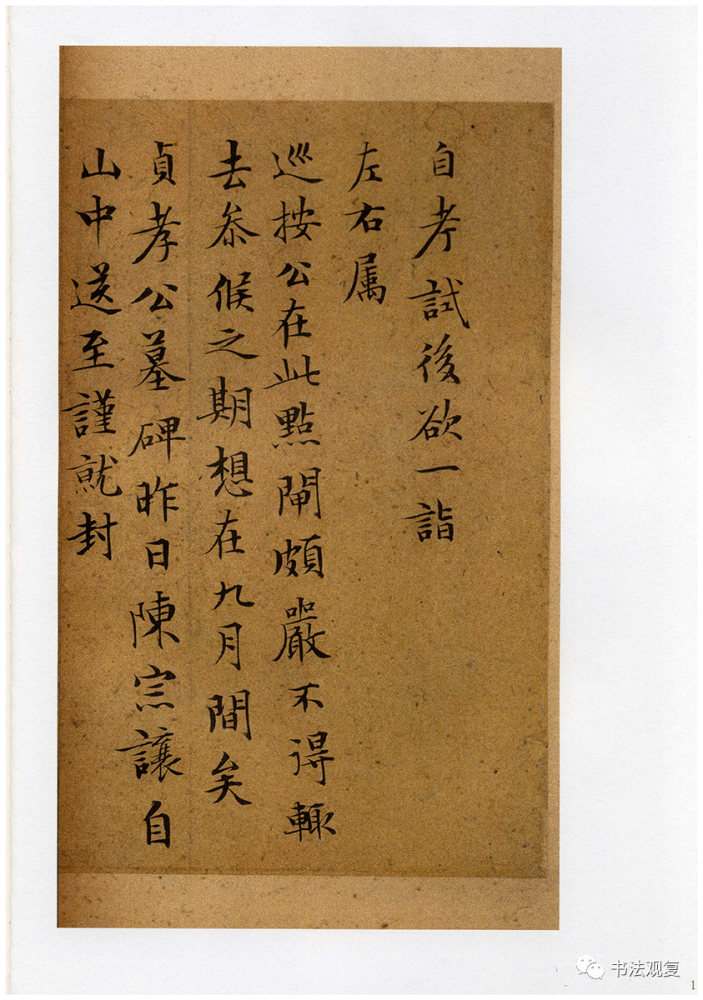 自考試後欲一詣
左右属
巡按公在此點閘頗嚴不得輙
去叅候之期想在九月間矣
貞孝公墓碑昨日陳宗讓自
山中送至謹就封
书法观复
1